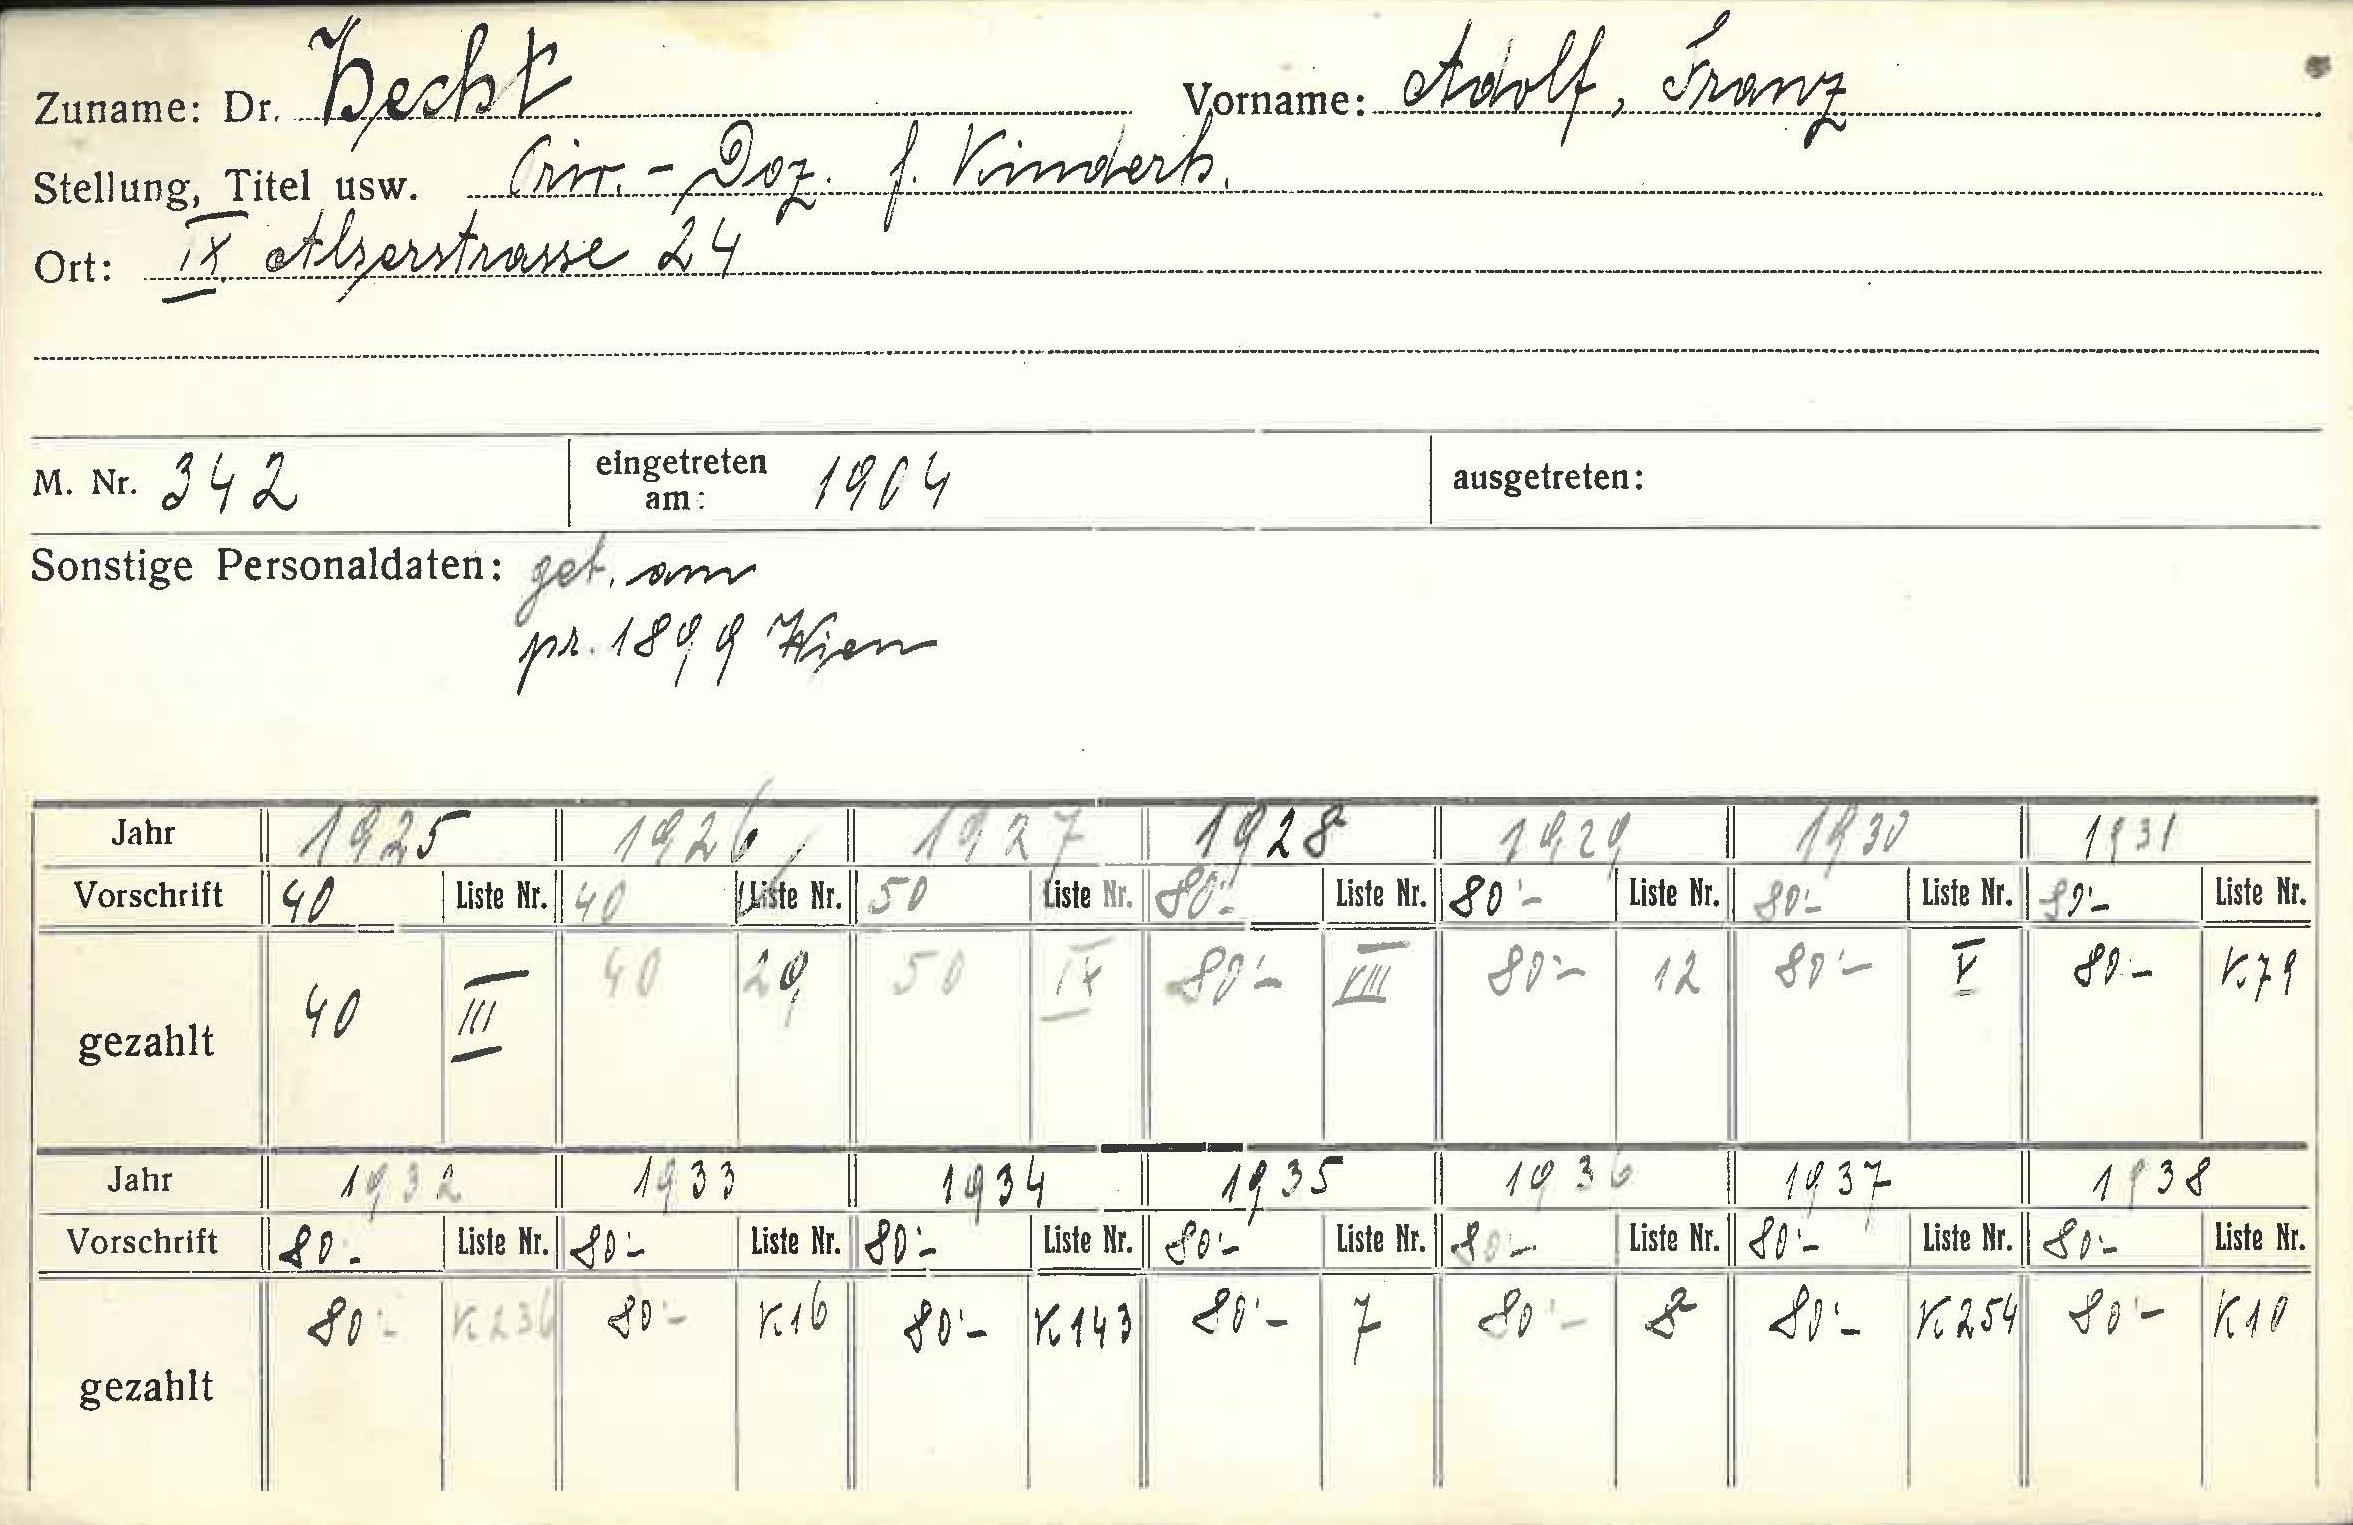 Zuname: Dr. Hecht Vorname: Adolf, Franz
Stellung, Titel usw. Priv.-Doz. f. Kinderh.
Ort: IX Alserstrasse 24
M. Nr. 342 eingetreten am: 1904 ausgetreten:
Sonstige Personaldaten: geb. am
pr. 1899 Wien
Jahr 1925 1926 1927 1928 1929 1930 1931
Vorschrift 40 Liste Nr. 40 Liste Nr. 50 Liste Nr. 80'- Liste Nr. 80'- Liste Nr. 80'- Liste Nr. 80'- Liste Nr.
gezahlt 40 III 40 29 50 IX 80'- VIII 80'- 12 80'- V 80'- K79
Jahr 1932 1933 1934 1935 1936 1937 1938
Vorschrift 80'- Liste Nr. 80'- Liste Nr. 80'- Liste Nr. 80'- Liste Nr. 80'- Liste Nr. 80'- Liste Nr. 80'- Liste Nr.
gezahlt 80'- K236 80'- K16 80'- K143 80'- 7 80'- 8 80'- K254 80'- K10